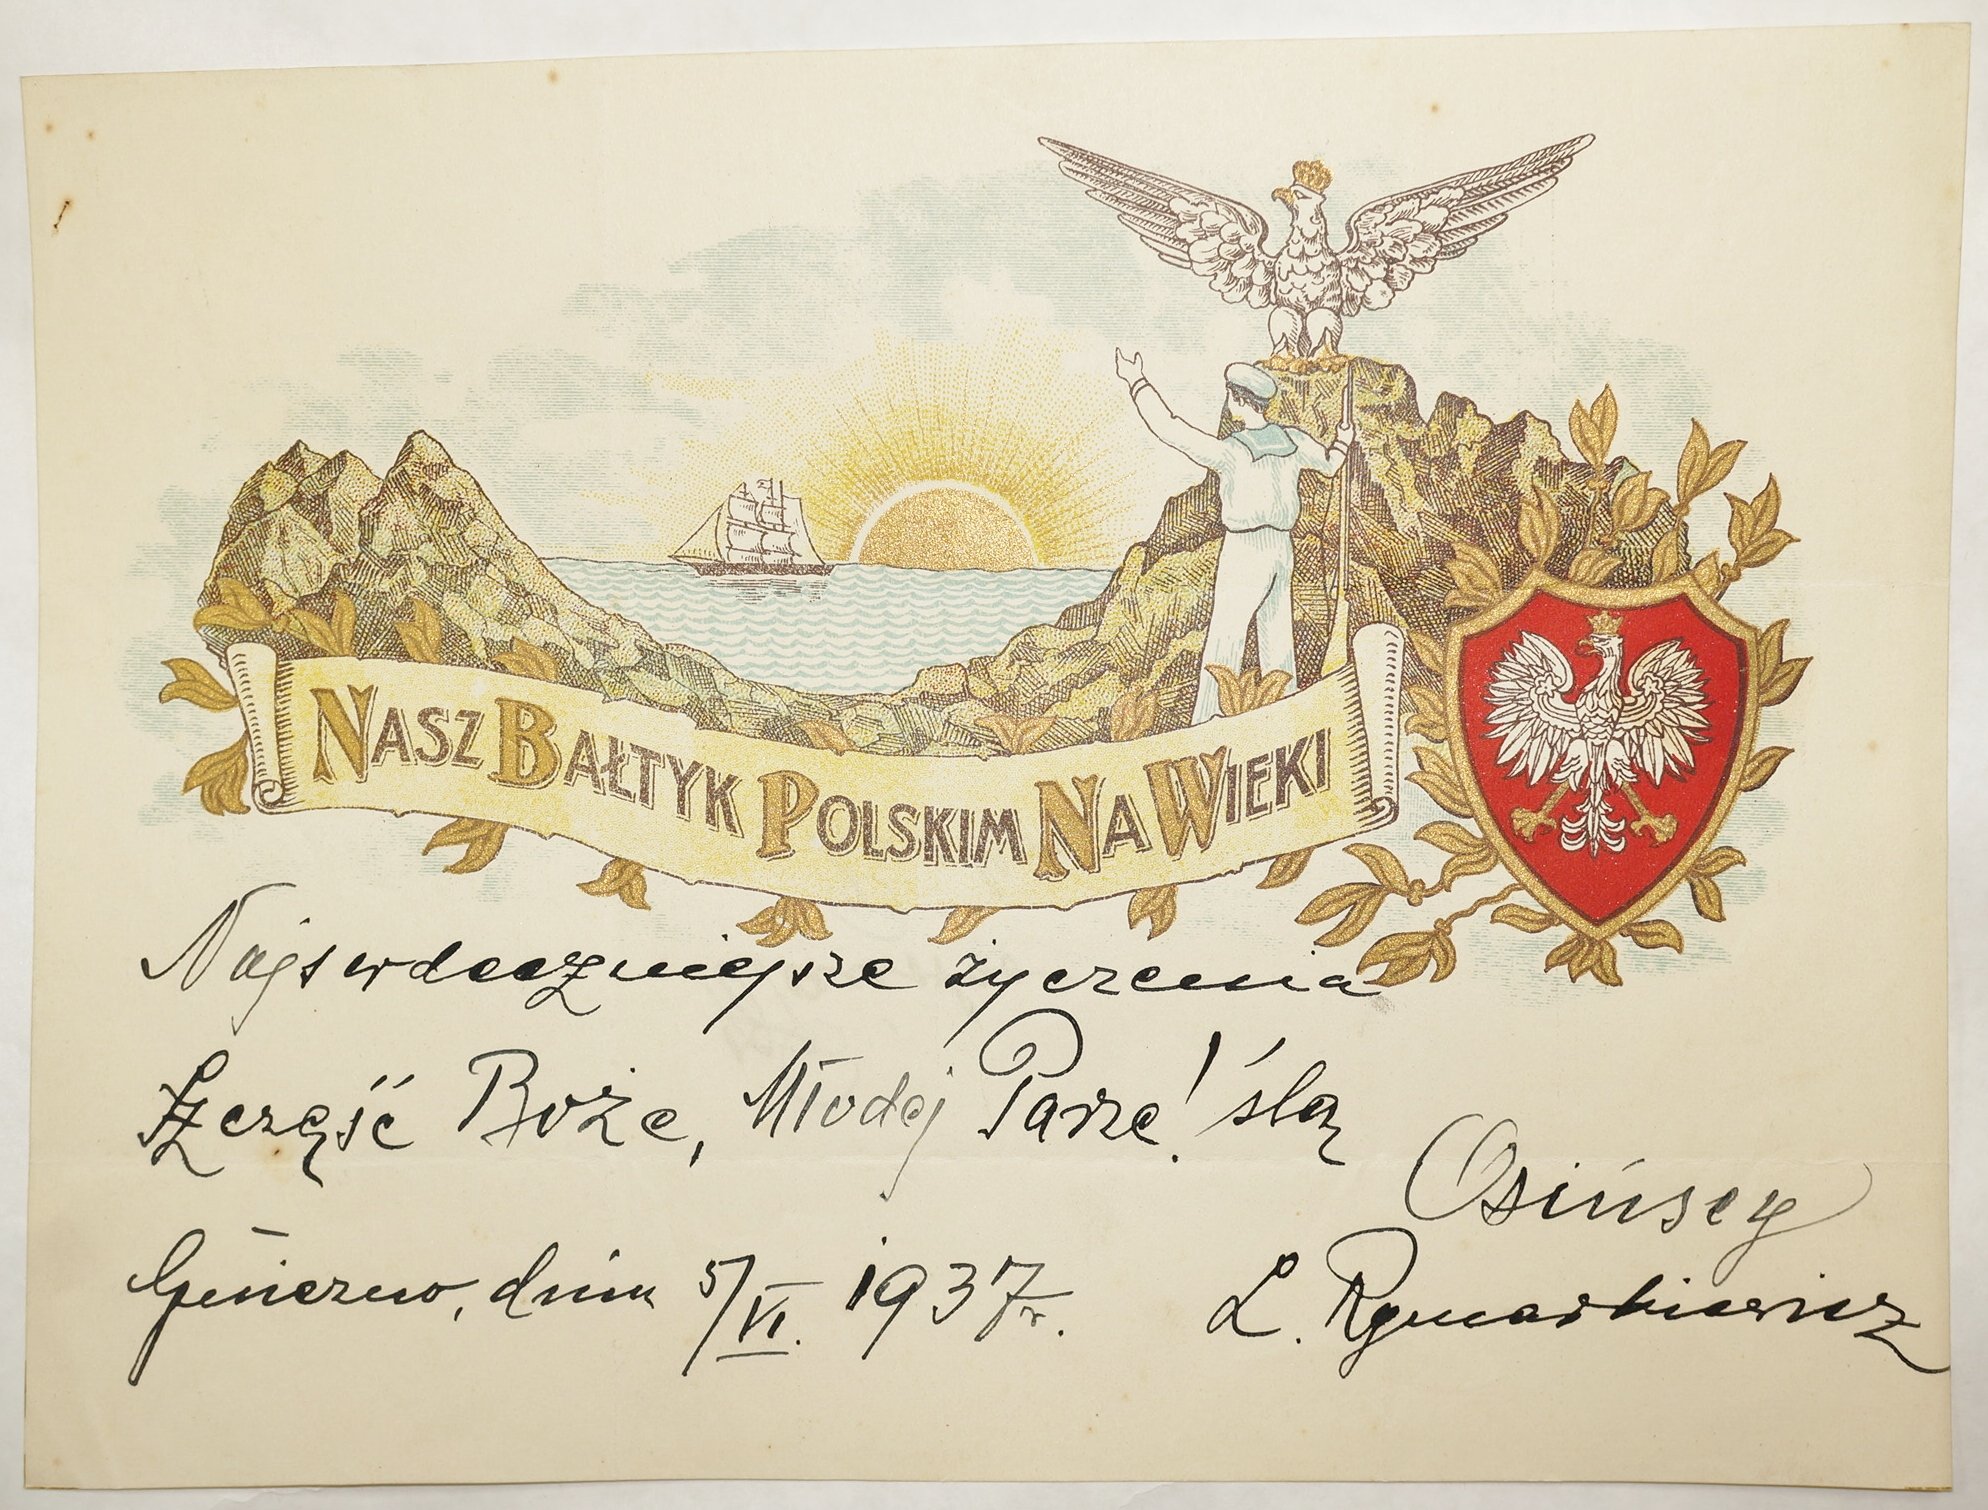 NASZ BAŁTYK POLSKIM NA WIEKI
Najserdeczniejsze życzenia
Szczęść Boże, Młodej Parze! ślą
Osińscy
Gniezno, dnia 5/VI. 1937 r.
L. Rymarkiewicz